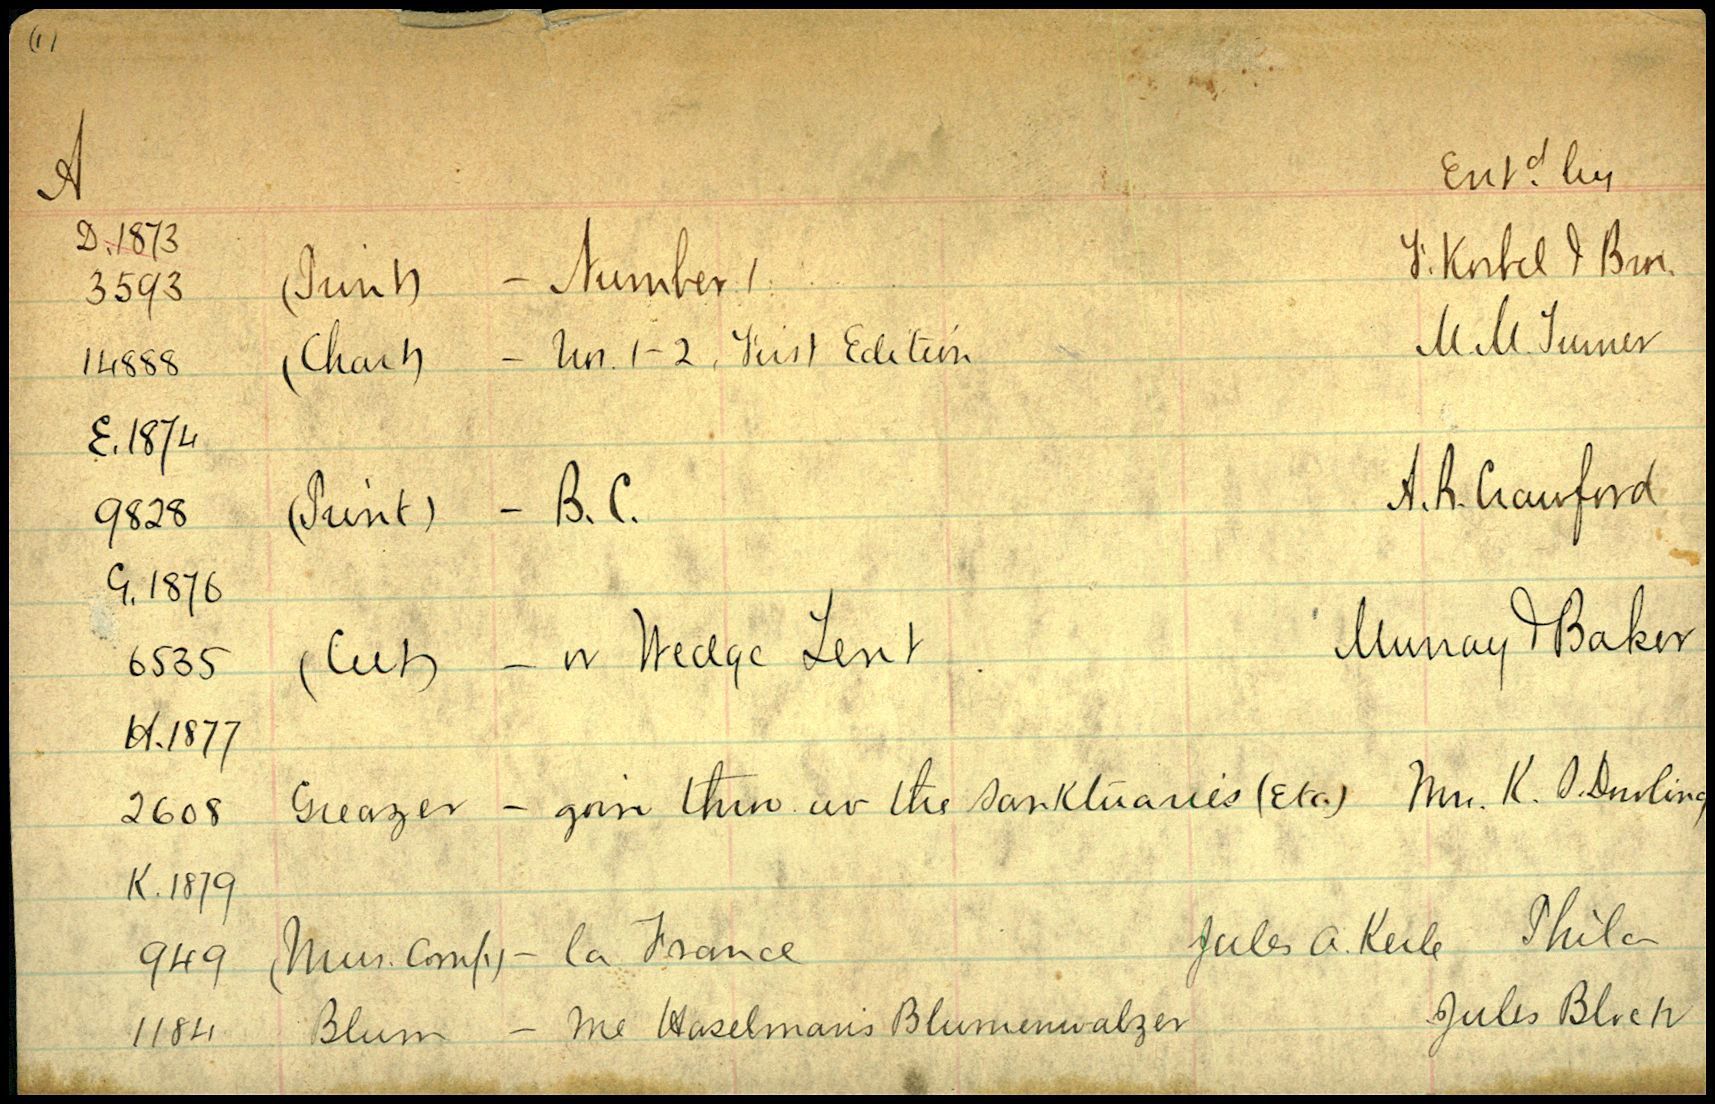 (1)
A Entd. by
D. 1873
3593 (Print) - Number 1 F. Korbel & Bro.
14888 (Chart) - Nos. 1-2, First Edition M. M. Turner
E. 1874
9828 (Print) - B. C. A. R. Crawford
G. 1876
6535 (Cut) - or Wedge Tent Murray & Baker
H. 1877
2608 Greazer - goin thro uv the sanktuaries (Etc.) Mrs. K. S. Durling
K. 1879
949 (Mus. Comp.) - la France Jules A. Keile Phila
1184 Blum - Me Haselmans Blumenwalzer Jules Bloch